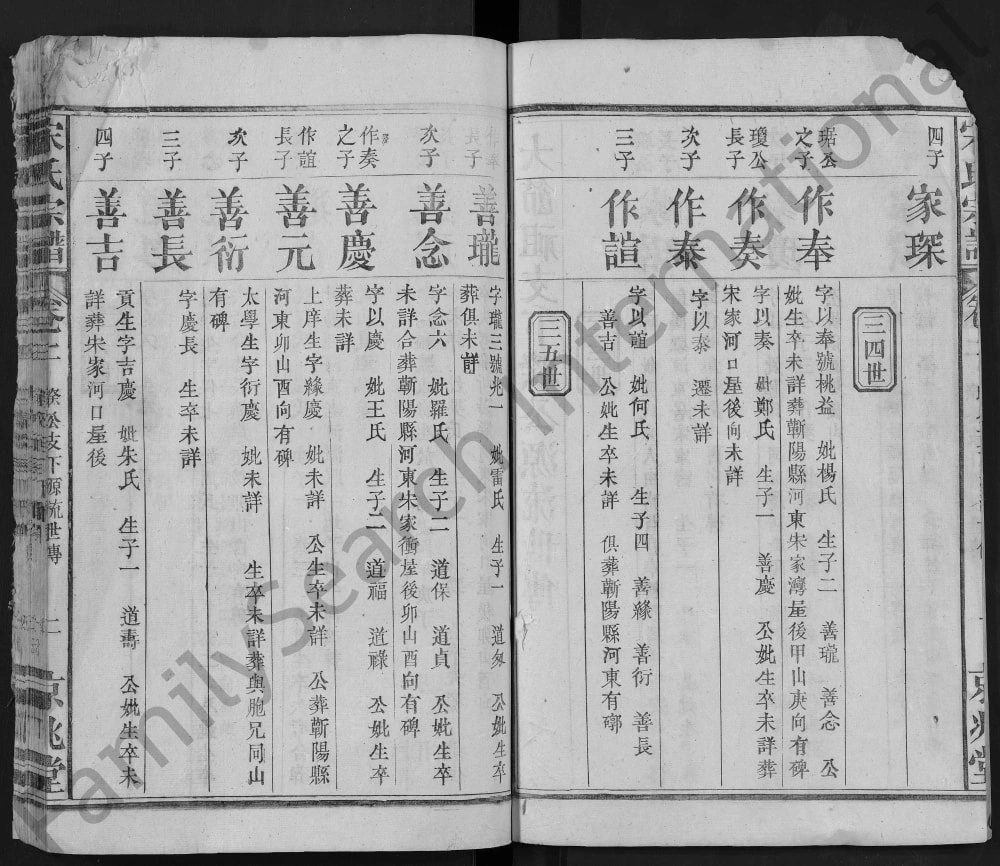 宋氏宗譜
京兆堂
四子
家琛
三四世
琚公之子
作奉
字以奉號桃益 妣楊氏 生子二 善瓏 善念 公
妣生卒未詳葬蘄陽縣河東宋家灣屋後甲山庚向有碑
瓊公長子
作奏
字以奏 妣鄭氏 生子一 善慶 公妣生卒未詳葬
宋家河口屋後向未詳
次子
作泰
字以泰 遷未詳
三子
作誼
字以誼 妣何氏 生子四 善緣 善衍 善長
善吉 公妣生卒未詳 俱葬蘄陽縣河東有鄩
三五世
善瓏
字瓏三號兆一 妣雷氏 生子一 道匆 公妣生卒
葬俱未詳
次子
善念
字念六 妣羅氏 生子二 道保 道貞 公妣生卒
未詳合葬蘄陽縣河東宋家衝屋後卯山酉向有碑
作奏之子
善慶
字以慶 妣王氏 生子二 道福 道祿 公妣生卒
葬未詳
作誼長子
善元
上庠生字緣慶 妣未詳 公生卒未詳 公葬蘄陽縣
河東卯山酉向有碑
次子
善衍
太學生字衍慶 妣未詳 生卒未詳葬與胞兄同山
有碑
三子
善長
字慶長 生卒未詳
四子
善吉
貢生字吉慶 妣朱氏 生子一 道壽 公妣生卒未
詳葬宋家河口屋後
宋氏宗譜
卷之二
榮公支下源流世傳
二
京兆堂
FamilySearch International